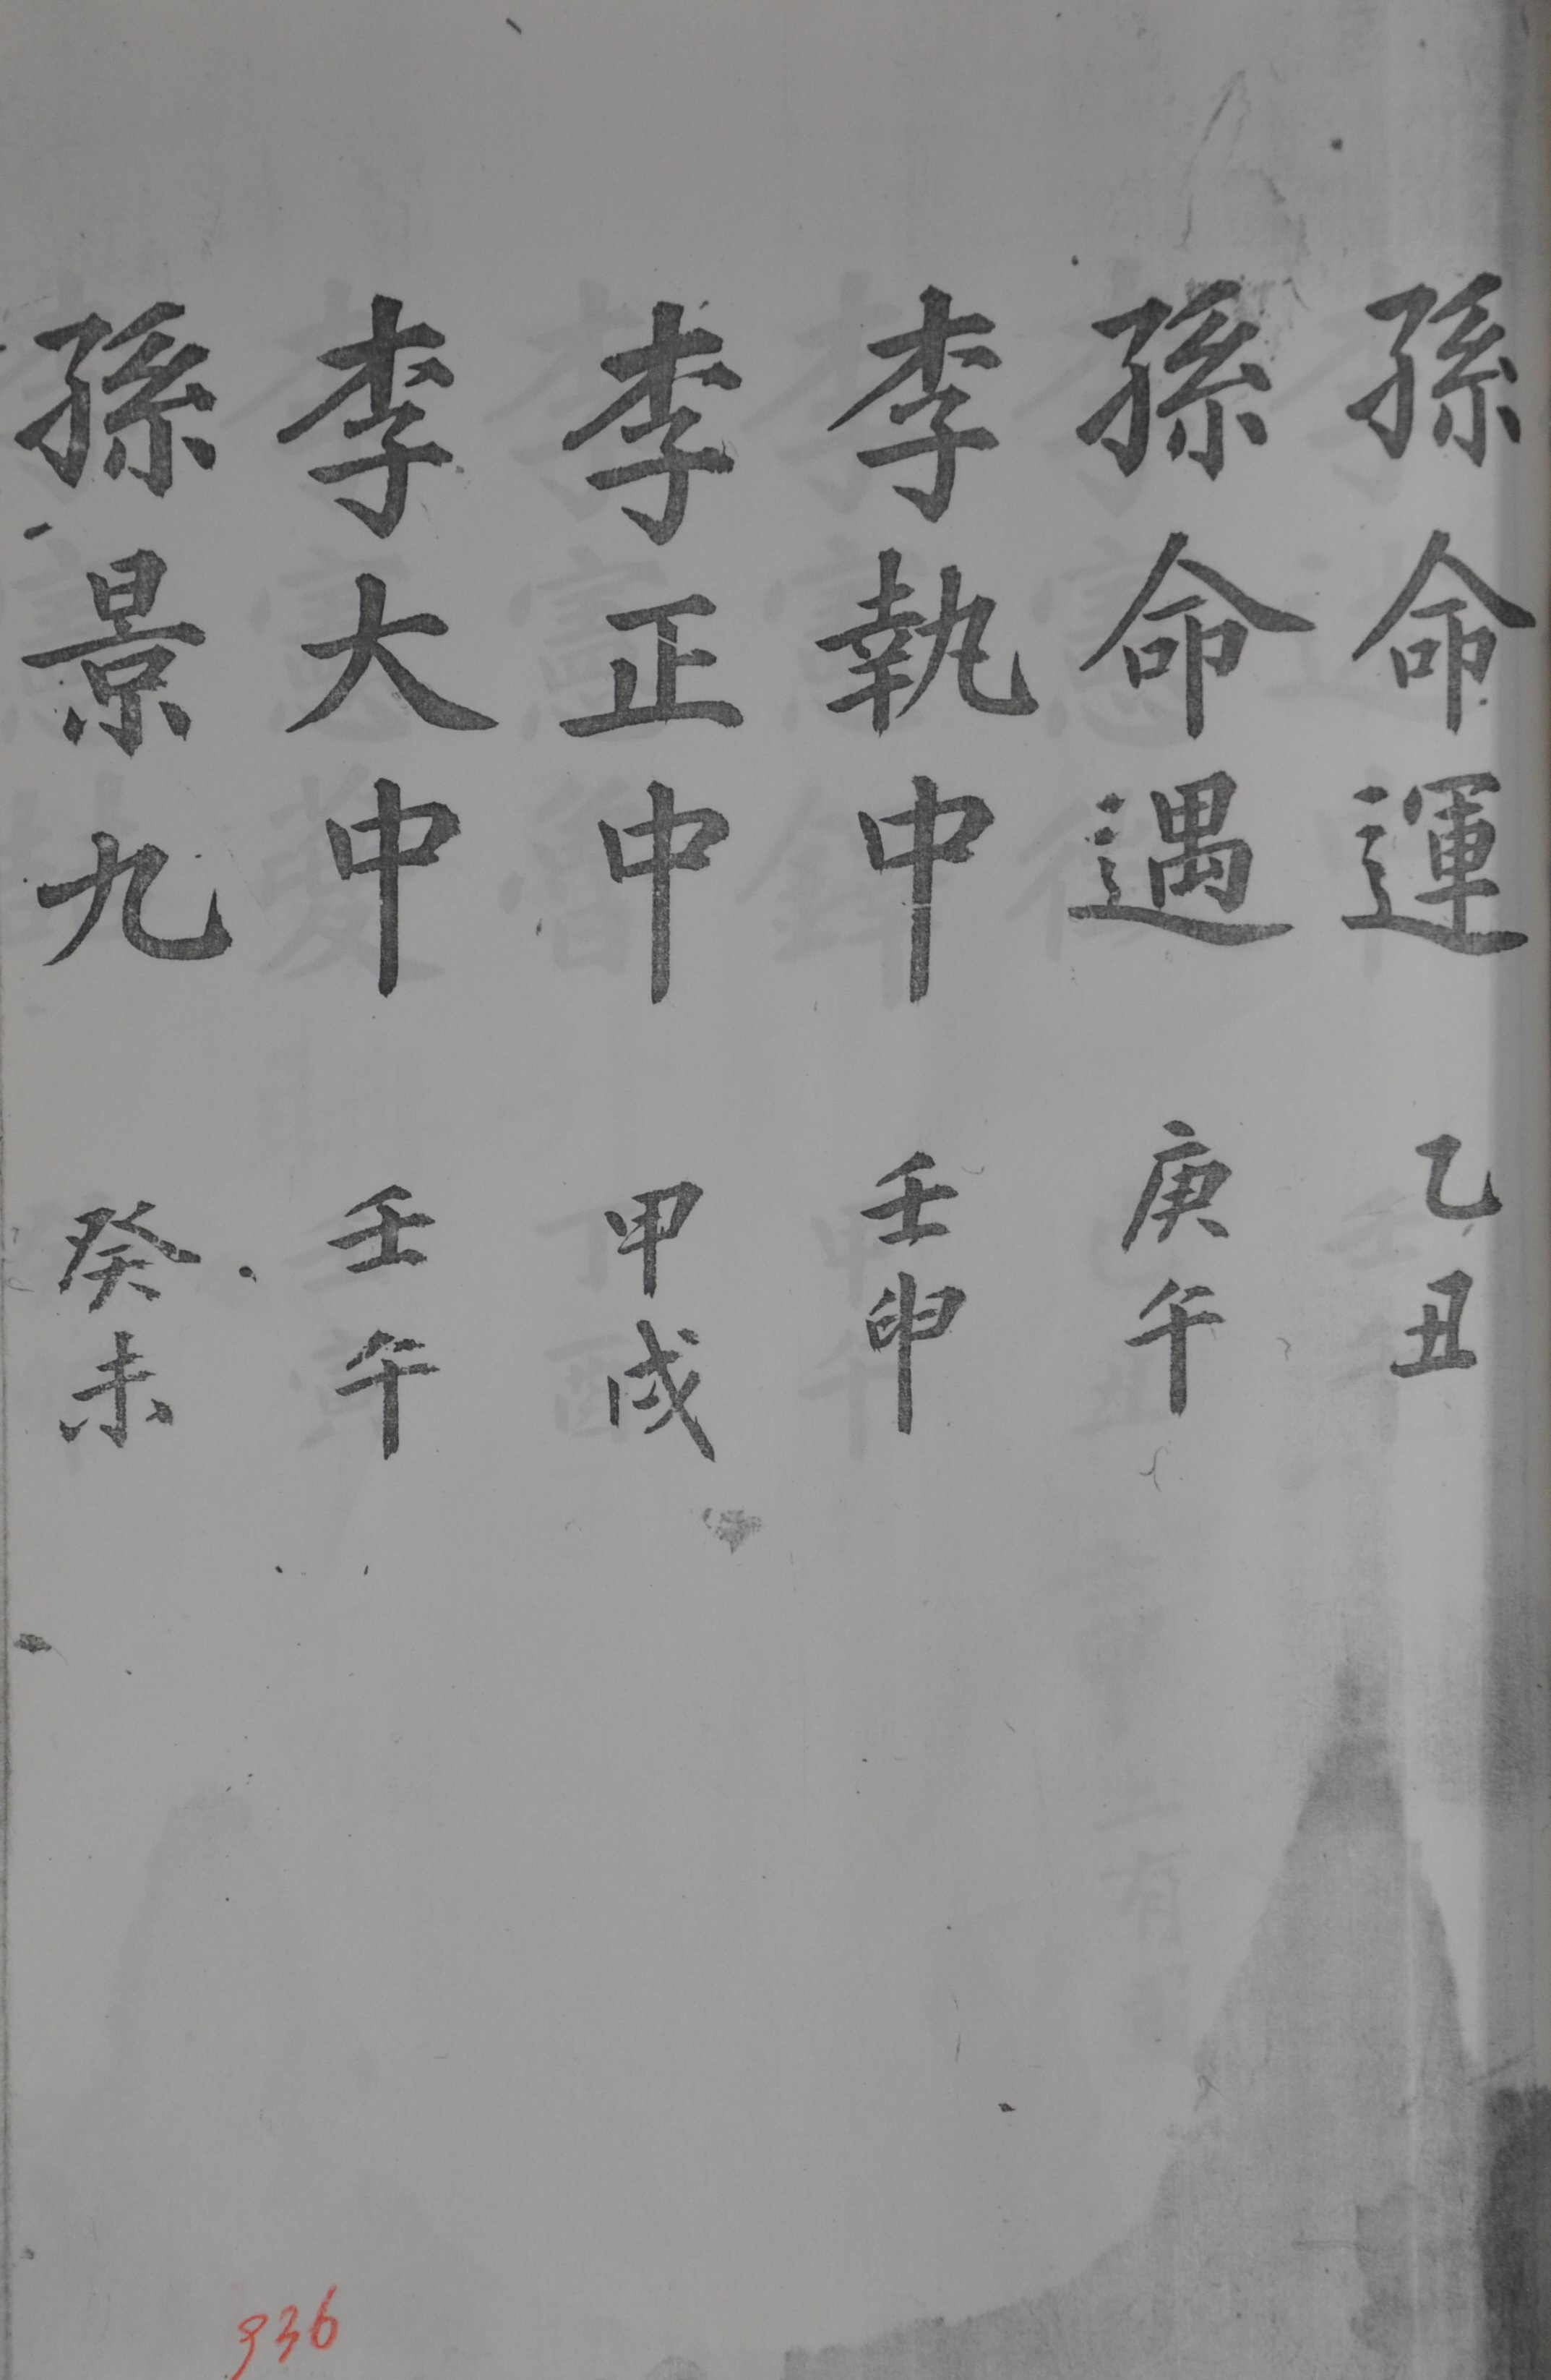 孫命運 乙丑
孫命遇 庚午
李執中 壬申
李正中 甲戌
李大中 壬午
孫景九 癸未
936